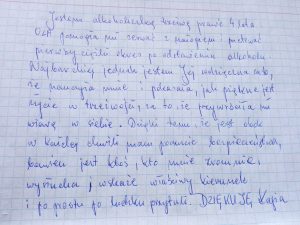 Jestem alkoholiczką trzeźwą prawie 4 lata.
pomogła mi zerwać z nałogiem i przetrwać
pierwszy ciężki okres po odstawieniu alkoholu.
Najbardziej jednak jestem Jej wdzięczna za to,
że pomogła mnie i pokazała, jak piękne jest
życie w trzeźwości, za to, że przywróciła mi
wiarę w siebie. Dzięki temu, że jest obok
w każdej chwili mam poczucie bezpieczeństwa,
bowiem jest ktoś, kto mnie zrozumie,
wysłucha, wskaże właściwy kierunek
i po prostu po ludzku przytuli. DZIĘKUJĘ Kasia